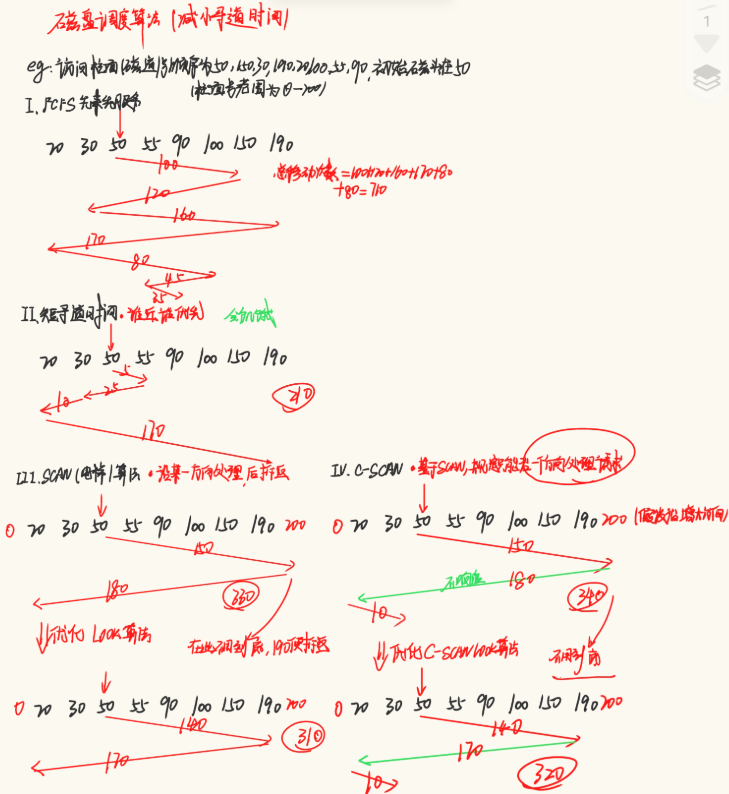 磁盘调度算法(减小寻道时间)
eg:访问柱面(磁道)号顺序为50,150,30,190,20,100,55,90,初始磁头在50
(柱面号范围为0-200)
I. FCFS 先来先服务
20 30 50 55 90 100 150 190
100
总移动次数=100+120+160+170+80
+80=710
120
160
170
80
45
35
II.短寻道时间·谁近谁优先 会饥饿
20 30 50 55 90 100 150 190
5
25
10
210
170
III.SCAN(电梯)算法·沿某一方向处理,后折返
0 20 30 50 55 90 100 150 190 200
150
180
330
优化 LOOK算法
在此不用到底,190便折返
0 20 30 50 55 90 100 150 190 200
140
310
170
IV. C-SCAN·基于SCAN,一个方向处理请求
0 20 30 50 55 90 100 150 190 200
150
不响应
180
340
10
优化C-SCAN LOOK算法
不用到底
0 20 30 50 55 90 100 150 190 200
140
170
320
10
1